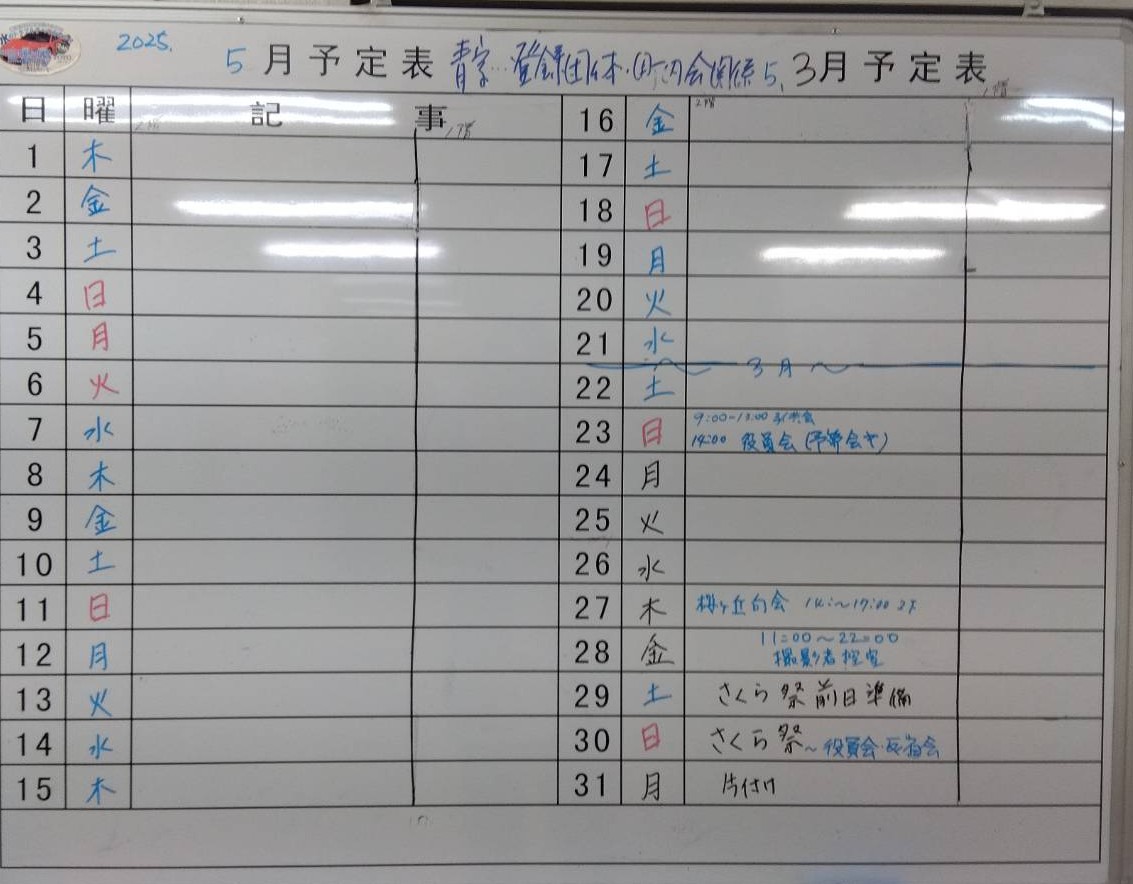 2025.
5月予定表 青字…登録団体・町内会関係 5,3月予定表
日 曜 記 事
2階 1階
1 木
2 金
3 土
4 日
5 月
6 火
7 水
8 木
9 金
10 土
11 日
12 月
13 火
14 水
15 木
2階 1階
16 金
17 土
18 日
19 月
20 火
21 水
3月
22 土
23 日 9:00-12:00
14:00 役員会(予算会せ)
24 月
25 火
26 水
27 木 桜ヶ丘句会 14:~17:00
28 金 11:00~22:00
撮影者控室
29 土 さくら祭前日準備
30 日 さくら祭~役員会・反省会
31 月 片付け